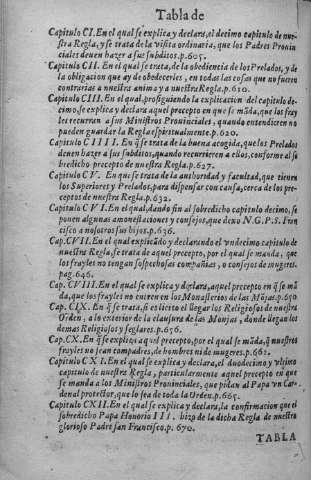 Tabla de
Capitulo CI. En el qual se explica y declara, el decimo capitulo de nue-
stra Regla, y se trata de la visita ordinaria, que los Padres Prouin
ciales deuen hazer a sus subditos. p. 605.
Capitulo CII. En el qual se trata, de la obediencia de los Prelados, y de
la obligacion que ay de obedecerles, en todas las cosas que no fueren
contrarias a nuestra anima y a nuestra Regla. p. 610.
Capitulo CIII. En el qual, prosiguiendo la explicacion del capitulo de-
cimo, se explica y declara aquel precepto en que se mãda, que los fray
les recurran a sus Ministros Prouinciales, quando entendieren no
pueden guardar la Regla espiritualmente. p. 620.
Capitulo CIIII. En q̃ se trata de la buena acogida, que los Prelados
deuen hazer a sus subditos, quando recurrieren a ellos, conforme al so
bredicho precepto de nuestra Regla. p. 627.
Capitulo CV. En que se trata de la authoridad y facultad, que tienen
los Superiores y Prelados, para dispensar con causa, cerca de los pre-
ceptos de nuestra Regla. p. 632.
Capitulo CVI. En el qual, dando fin al sobredicho capitulo decimo, se
ponen algunas amonestaciones y consejos, que dexo N. G. P. S. Fran
cisco a nosotros sus hijos. p. 636.
Cap. CVII. En el qual explicãdo y declarando el vndecimo capitulo de
nuestra Regla, se trata de aquel precepto, por el qual se manda, que
los frayles no tengan sospechosas compañias, o consejos de mugeres.
pag. 646.
Cap. CVIII. En el qual se explica y declara, aquel precepto en q̃ se mã
da, que los frayles no entren en los Monasterios de las Mõjas. p. 650
Cap. CIX. En q̃ se trata, si es licito el llegar los Religiosos de nuestra
Orden, a lo exterior de la clausura de las Monjas, donde llegan los
demas Religiosos y seglares. p. 656.
Cap. CX. En q̃ se explica aquel precepto, por el qual se mãda, q̃ nuestros
frayles no sean compadres, de hombres ni de mugeres. p. 661.
Capitulo CXI. En el qual se explica y declara, el duodecimo y vltimo
capitulo de nuestra Regla, y particularmente aquel precepto en que
se manda a los Ministros Prouinciales, que pidan al Papa vn Car-
denal protector, que lo sea de toda la Orden. p. 665.
Capitulo CXII. En el qual se explica y declara, la confirmacion que el
sobredicho Papa Honorio III, hizo de la dicha Regla de nuestro
glorioso Padre san Francisco. p. 670.
TABLA